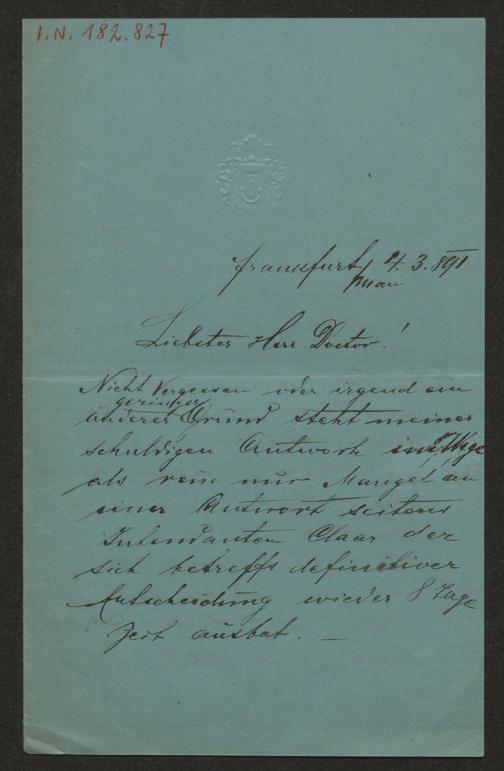 I.N. 182.827
Frankfurt/ 4.3.891
Main
Liebster Herr Doctor!
Nicht Vergessen oder irgend ein
geringer
anderer Grund steht meiner
schuldigen Antwort im Wege
als rein nur Mangel an
einer Antwort seitens
Intendanten Claar der
sich betreffs definitiver
Entscheidung wieder 8 Tage
Zeit ausbat. —